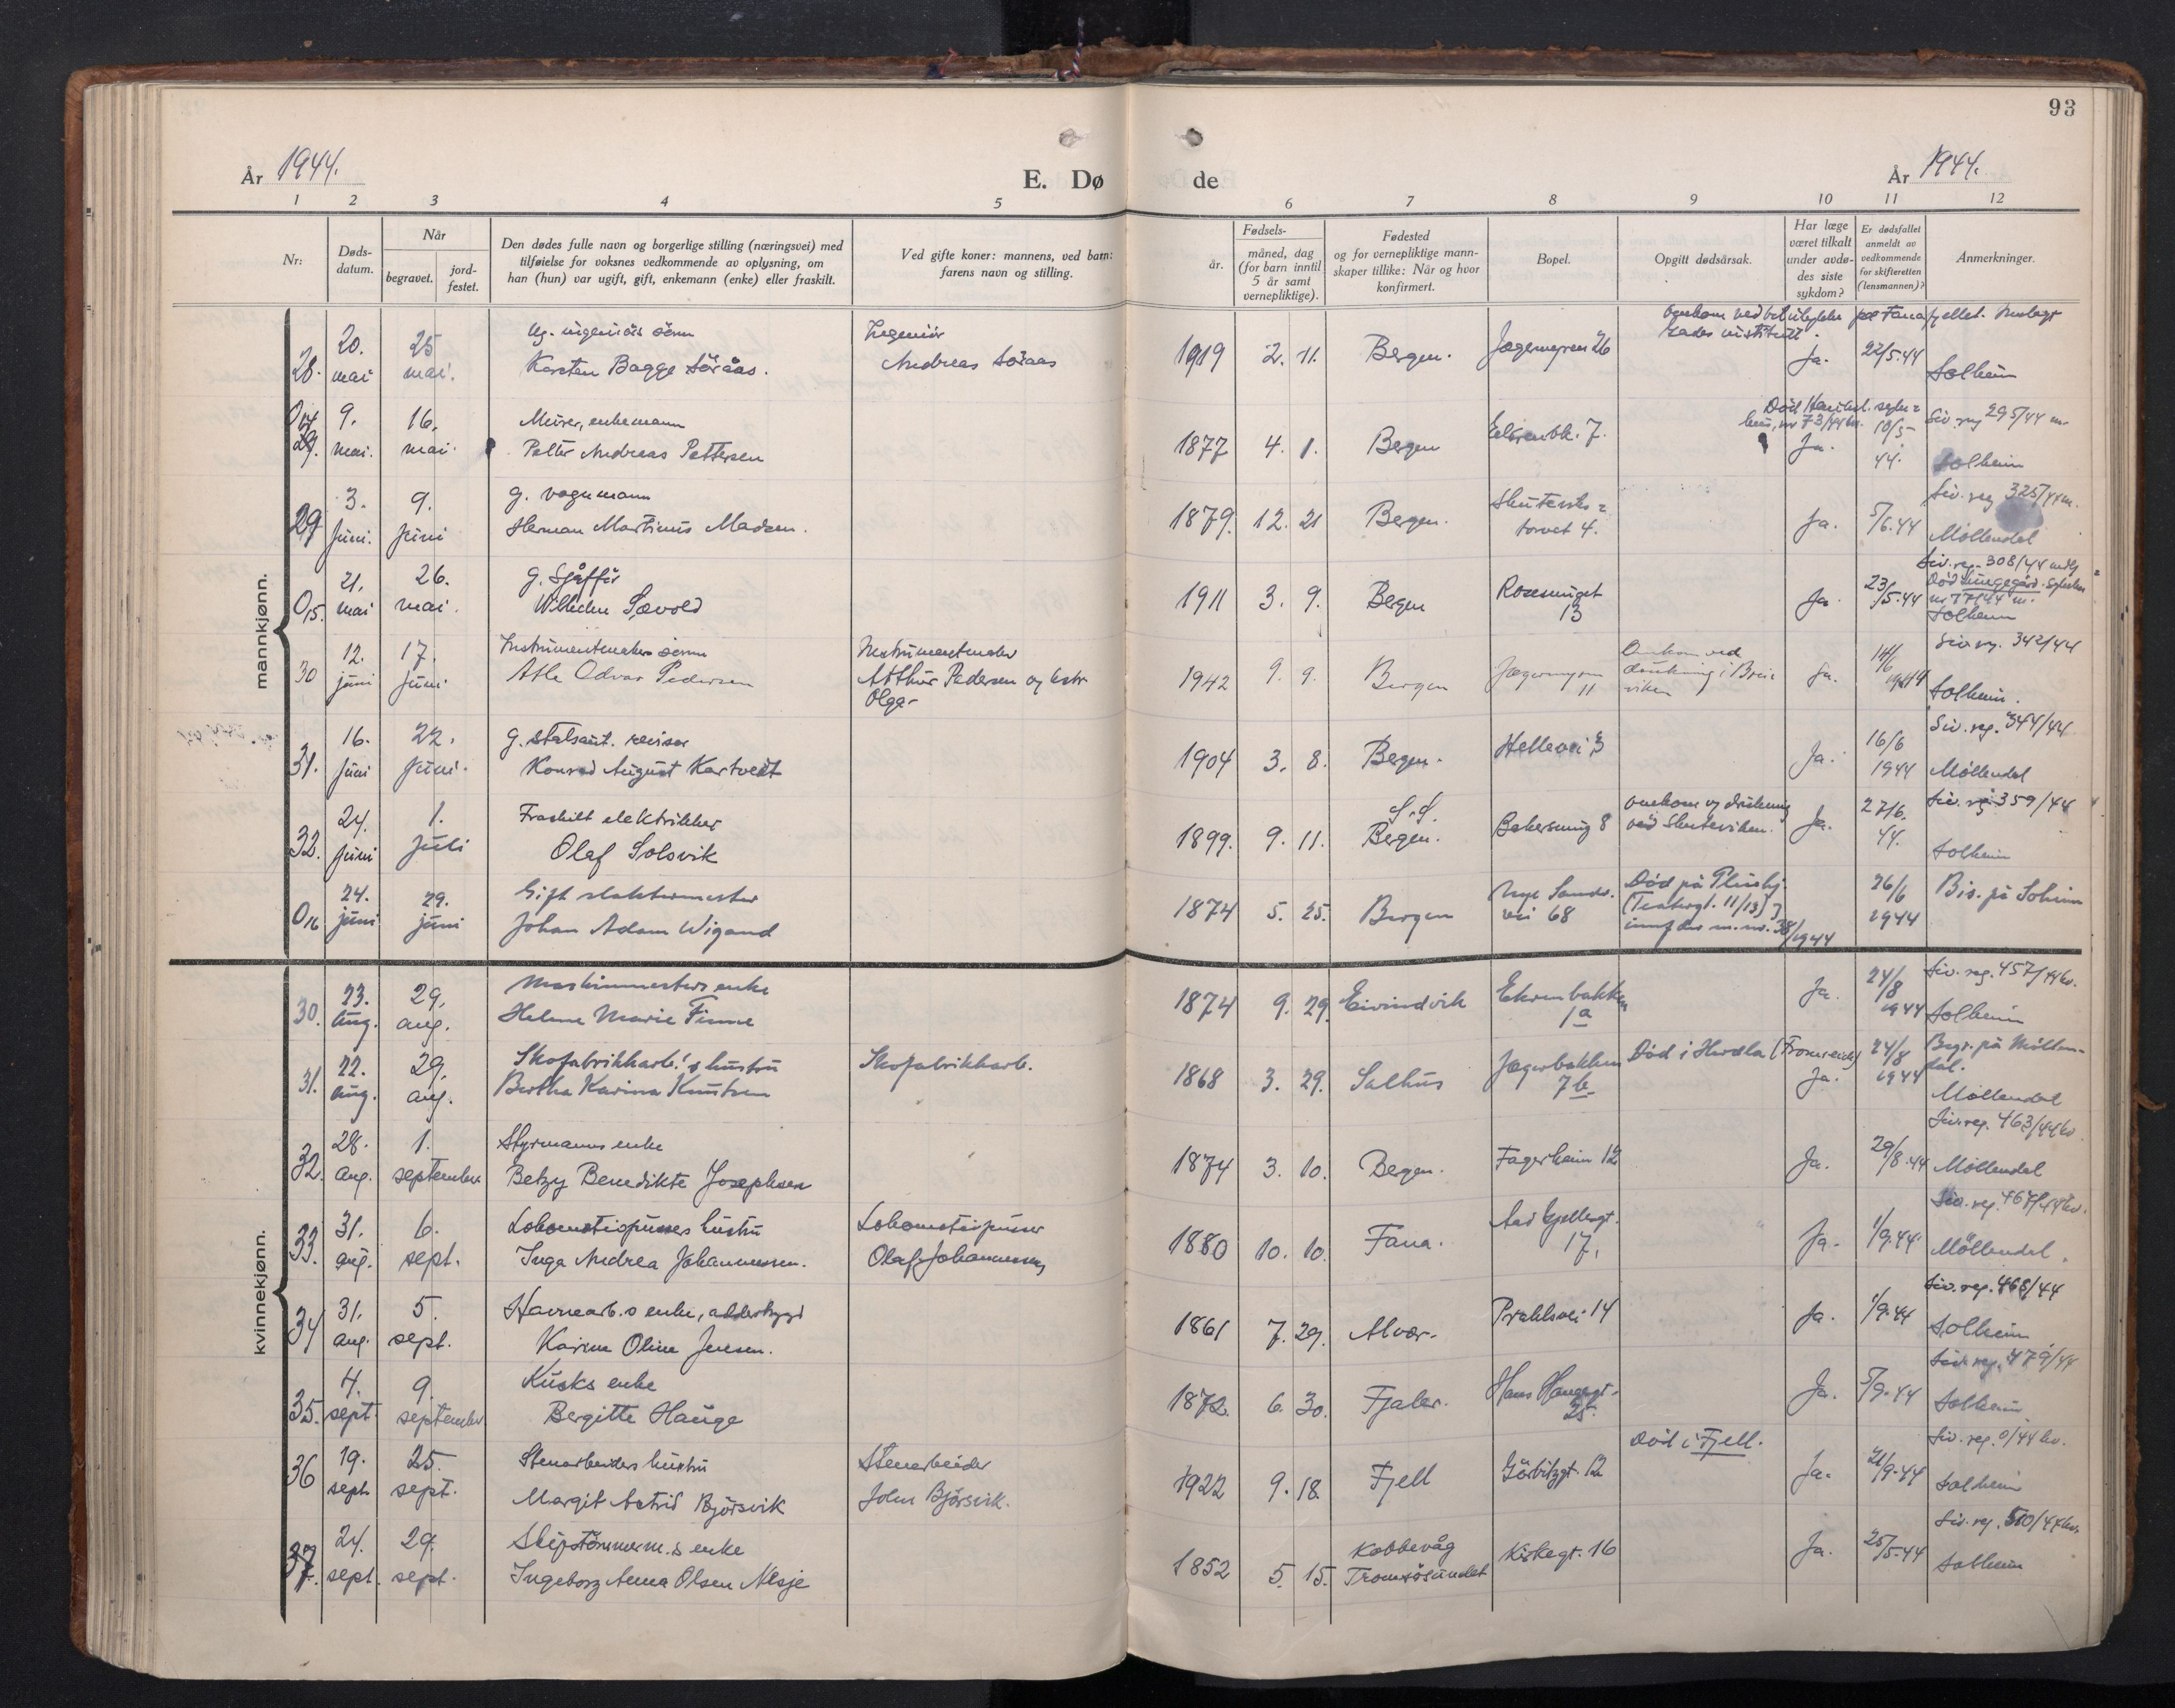 93
År 1944.
E. Dø de
År 1944.
1 2 3 4 5 6 7 8 9 10 11 12
Nr:
Døds-
datum.
Når
begravet.
jord-
festet.
Den dødes fulle navn og borgerlige stilling (næringsvei) med
tilføielse for voksnes vedkommende av oplysning, om
han (hun) var ugift, gift, enkemann (enke) eller fraskilt.
Ved gifte koner: mannens, ved barn:
farens navn og stilling.
Fødsels-
år.
måned, dag
(for barn inntil
5 år samt
vernepliktige).
Fødested
og for vernepliktige mann-
skaper tillike: Når og hvor
konfirmert.
Bopel.
Opgitt dødsårsak.
Har læge
været tilkalt
under avdø-
des siste
sykdom?
Er dødsfallet
anmeldt av
vedkommende
for skifteretten
(lensmannen)?
Anmerkninger.
mannkjønn.
28. 20. mai 25 mai.
Karsten Bagge Söraas.
Ingeniör
Andreas Söraas
1919 2. 11. Bergen. Jægermyren 26
Ja. 22/5.44 Solheim
9. mai. 16. mai.
Murer, enkemann
Petter Andreas Pettersen
1877 4. 1. Bergen
Ja. 10/5 44.
Siv. reg 295/44 m.
Solheim
29 3. Juni. 9. juni
g. vognmann
Herman Martinus Madsen.
1879. 12. 21 Bergen.
torvet 4.
Ja. 5/6.44
Siv. reg 325/44 m.
Möllendal
O15. 21. mai 26. mai.
g. Sjåfför
Wilhelm Sævold
1911 3. 9. Bergen Rosesmuget
13
Ja 23/5.44
Siv. reg. 308/44
Solheim
30 12. juni 17. juni
Instrumentmakers sönn
Atle Odvar Pedersen
Instrumentmaker
Arthur Pedersen og hstr
Olga
1942 9. 9. Bergen Jægermyren
11
Omkom ved
drukning i Brei-
viken
Ja. 14/6 1944
Siv. reg. 342/44
Solheim.
31. 16. juni 22. juni.
g. statsaut. revisor
Konrad August Kartvedt
1904 3. 8. Bergen. Hellevei 3
Ja. 16/6 1944
Siv. reg. 344/44
Möllendal
32. 24. juni 1. juli
Fraskilt elektriker
Olaf Solsvik
1899. 9. 11. Bergen. Bakersmug 8
ved Skuteviken.
Ja. 27/6. 44.
Siv. reg. 359/44
Solheim
O16 24. juni 29. juni
Gift slaktermester
Johan Adam Wigand
1874 5. 25. Bergen
vei 68
(Teatergt. 11/13)
26/6 1944
kvinnekjønn.
30. 23. aug. 29. aug.
Maskinmesters enke
Helene Marie Finne
1874 9. 29. Eivindvik Ekrenbakken
1a
Ja. 24/8 1944
Siv. reg. 457/44 kv.
Solheim
31. 22. aug. 29. aug.
Skofabrikkarb.'s hustru
Bertha Karina Knutsen
Skofabrikkarb.
1868 3. 29. Salhus Jægerbakken
7b
Død i Herdla
Ja. 24/8 1944
Begr. på Möllen-
dal.
Möllendal
32. 28. aug. 1. september
Styrmanns enke
Betzy Benedikte Josephsen
1874 3. 10. Bergen. Fagerheim 12
Ja. 29/8.44
Siv. reg. 463/44 kv.
Möllendal
33. 31. aug. 6. sept.
Lokomotivpussers hustru
Inga Andrea Johannessen.
Lokomotivpusser
Olaf Johannessen
1880 10. 10. Fana.
17.
Ja. 1/9.44
Siv. reg. 467/44 kv.
Möllendal.
34 31. aug. 5. sept.
Havnearb.s enke, alderstrygd
Karine Oline Jensen.
1861 7. 29. Alver. Prahlsvei 14
Ja. 1/9.44
Siv. reg. 468/44
Solheim
35. 4. sept. 9. september
Kusks enke
Bergitte Hauge
1872. 6. 30. Fjaler. Hans Haugesgt.
25.
Ja. 5/9.44
Siv. reg. 479/44
Solheim
36 19. sept. 25. sept.
Stenarbeiders hustru
Margit Astrid Bjørsvik
Stenarbeider
John Bjørsvik.
1922 9. 18. Fjell Görbitzgt. 12
Död i Fjell.
Ja. 21/9.44
Siv. reg. 0/44 kv.
Solheim
37. 24. sept. 29. sept.
Skipstömmerm.s enke
Ingeborg Anna Olsen Nesje
1852 5. 15. Kobbevåg
Tromsösundet
Kirkegt. 16
Ja. 25/5.44
Siv. reg. 510/44 kv.
Solheim